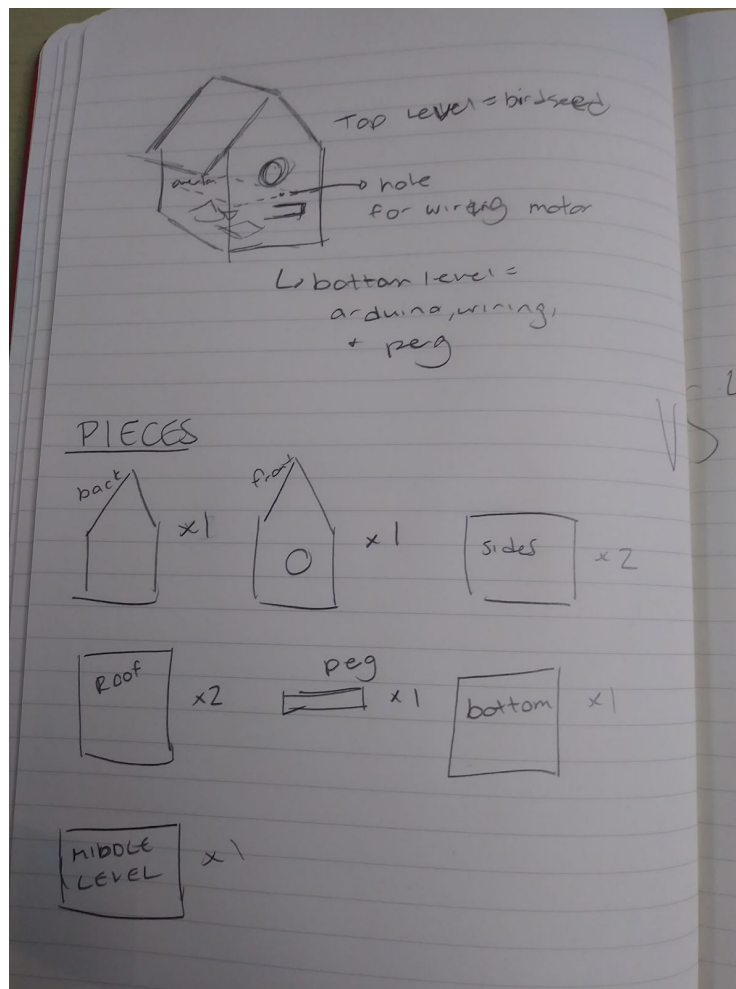 Top Level = birdseed
hole
for wiring motor
↳ bottom level =
arduino, wiring,
+ peg
PIECES
back
x1
front
x1
sides
x2
Roof
x2
peg
x1
bottom
x1
MIDDLE
LEVEL
x1
VS